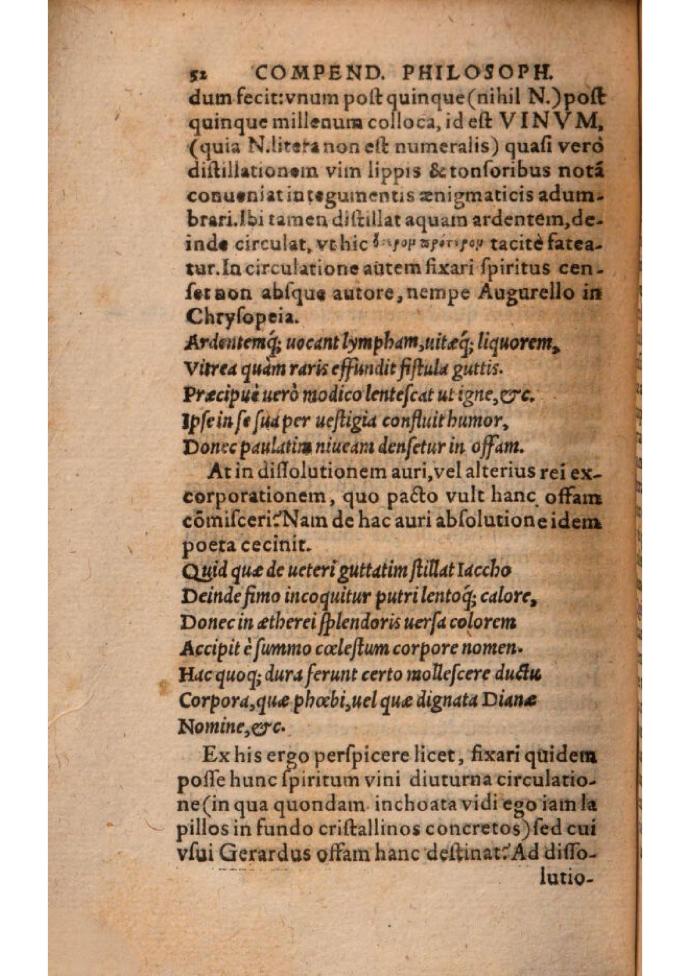 52 COMPEND. PHILOSOPH.
dum fecit:vnum poſt quinque(nihil N.)poſt
quinque millenum colloca, id eſt VINVM,
(quia N.litera non eſt numeralis) quaſi verò
diſtillationem vim lippis & tonſoribus notā
conueniat integumentis ænigmaticis adum-
brari.Ibi tamen diſtillat aquam ardentem,de-
inde circulat, vt hic ὕστερον πρότερον tacitè fatea-
tur.In circulatione autem fixari ſpiritus cen-
ſet non abſque autore, nempe Augurello in
Chryſopeia.
Ardentemq́; uocant lympham,uitæq́; liquorem,
Vitrea quàm raris effundit fiſtula guttis.
Præcipuè uerò modico lenteſcat ut igne,&c.
Ipſe in ſe ſua per ueſtigia confluit humor,
Donec paulatim niueam denſetur in offam.
At in diſſolutionem auri,vel alterius rei ex-
corporationem, quo pacto vult hanc offam
cōmiſceri?Nam de hac auri abſolutione idem
poeta cecinit.
Quid quæ de ueteri guttatim ſtillat Iaccho
Deinde fimo incoquitur putri lentoq́; calore,
Donec in ætherei ſplendoris uerſa colorem
Accipit è ſummo cœleſtum corpore nomen.
Hac quoq; dura ferunt certo molleſcere ductu
Corpora,quæ phœbi,uel quæ dignata Dianæ
Nomine,&c.
Ex his ergo perſpicere licet, fixari quidem
poſſe hunc ſpiritum vini diuturna circulatio-
ne(in qua quondam inchoata vidi ego iam la
pillos in fundo criſtallinos concretos)ſed cui
vſui Gerardus offam hanc deſtinat?Ad diſſo-
lutio-